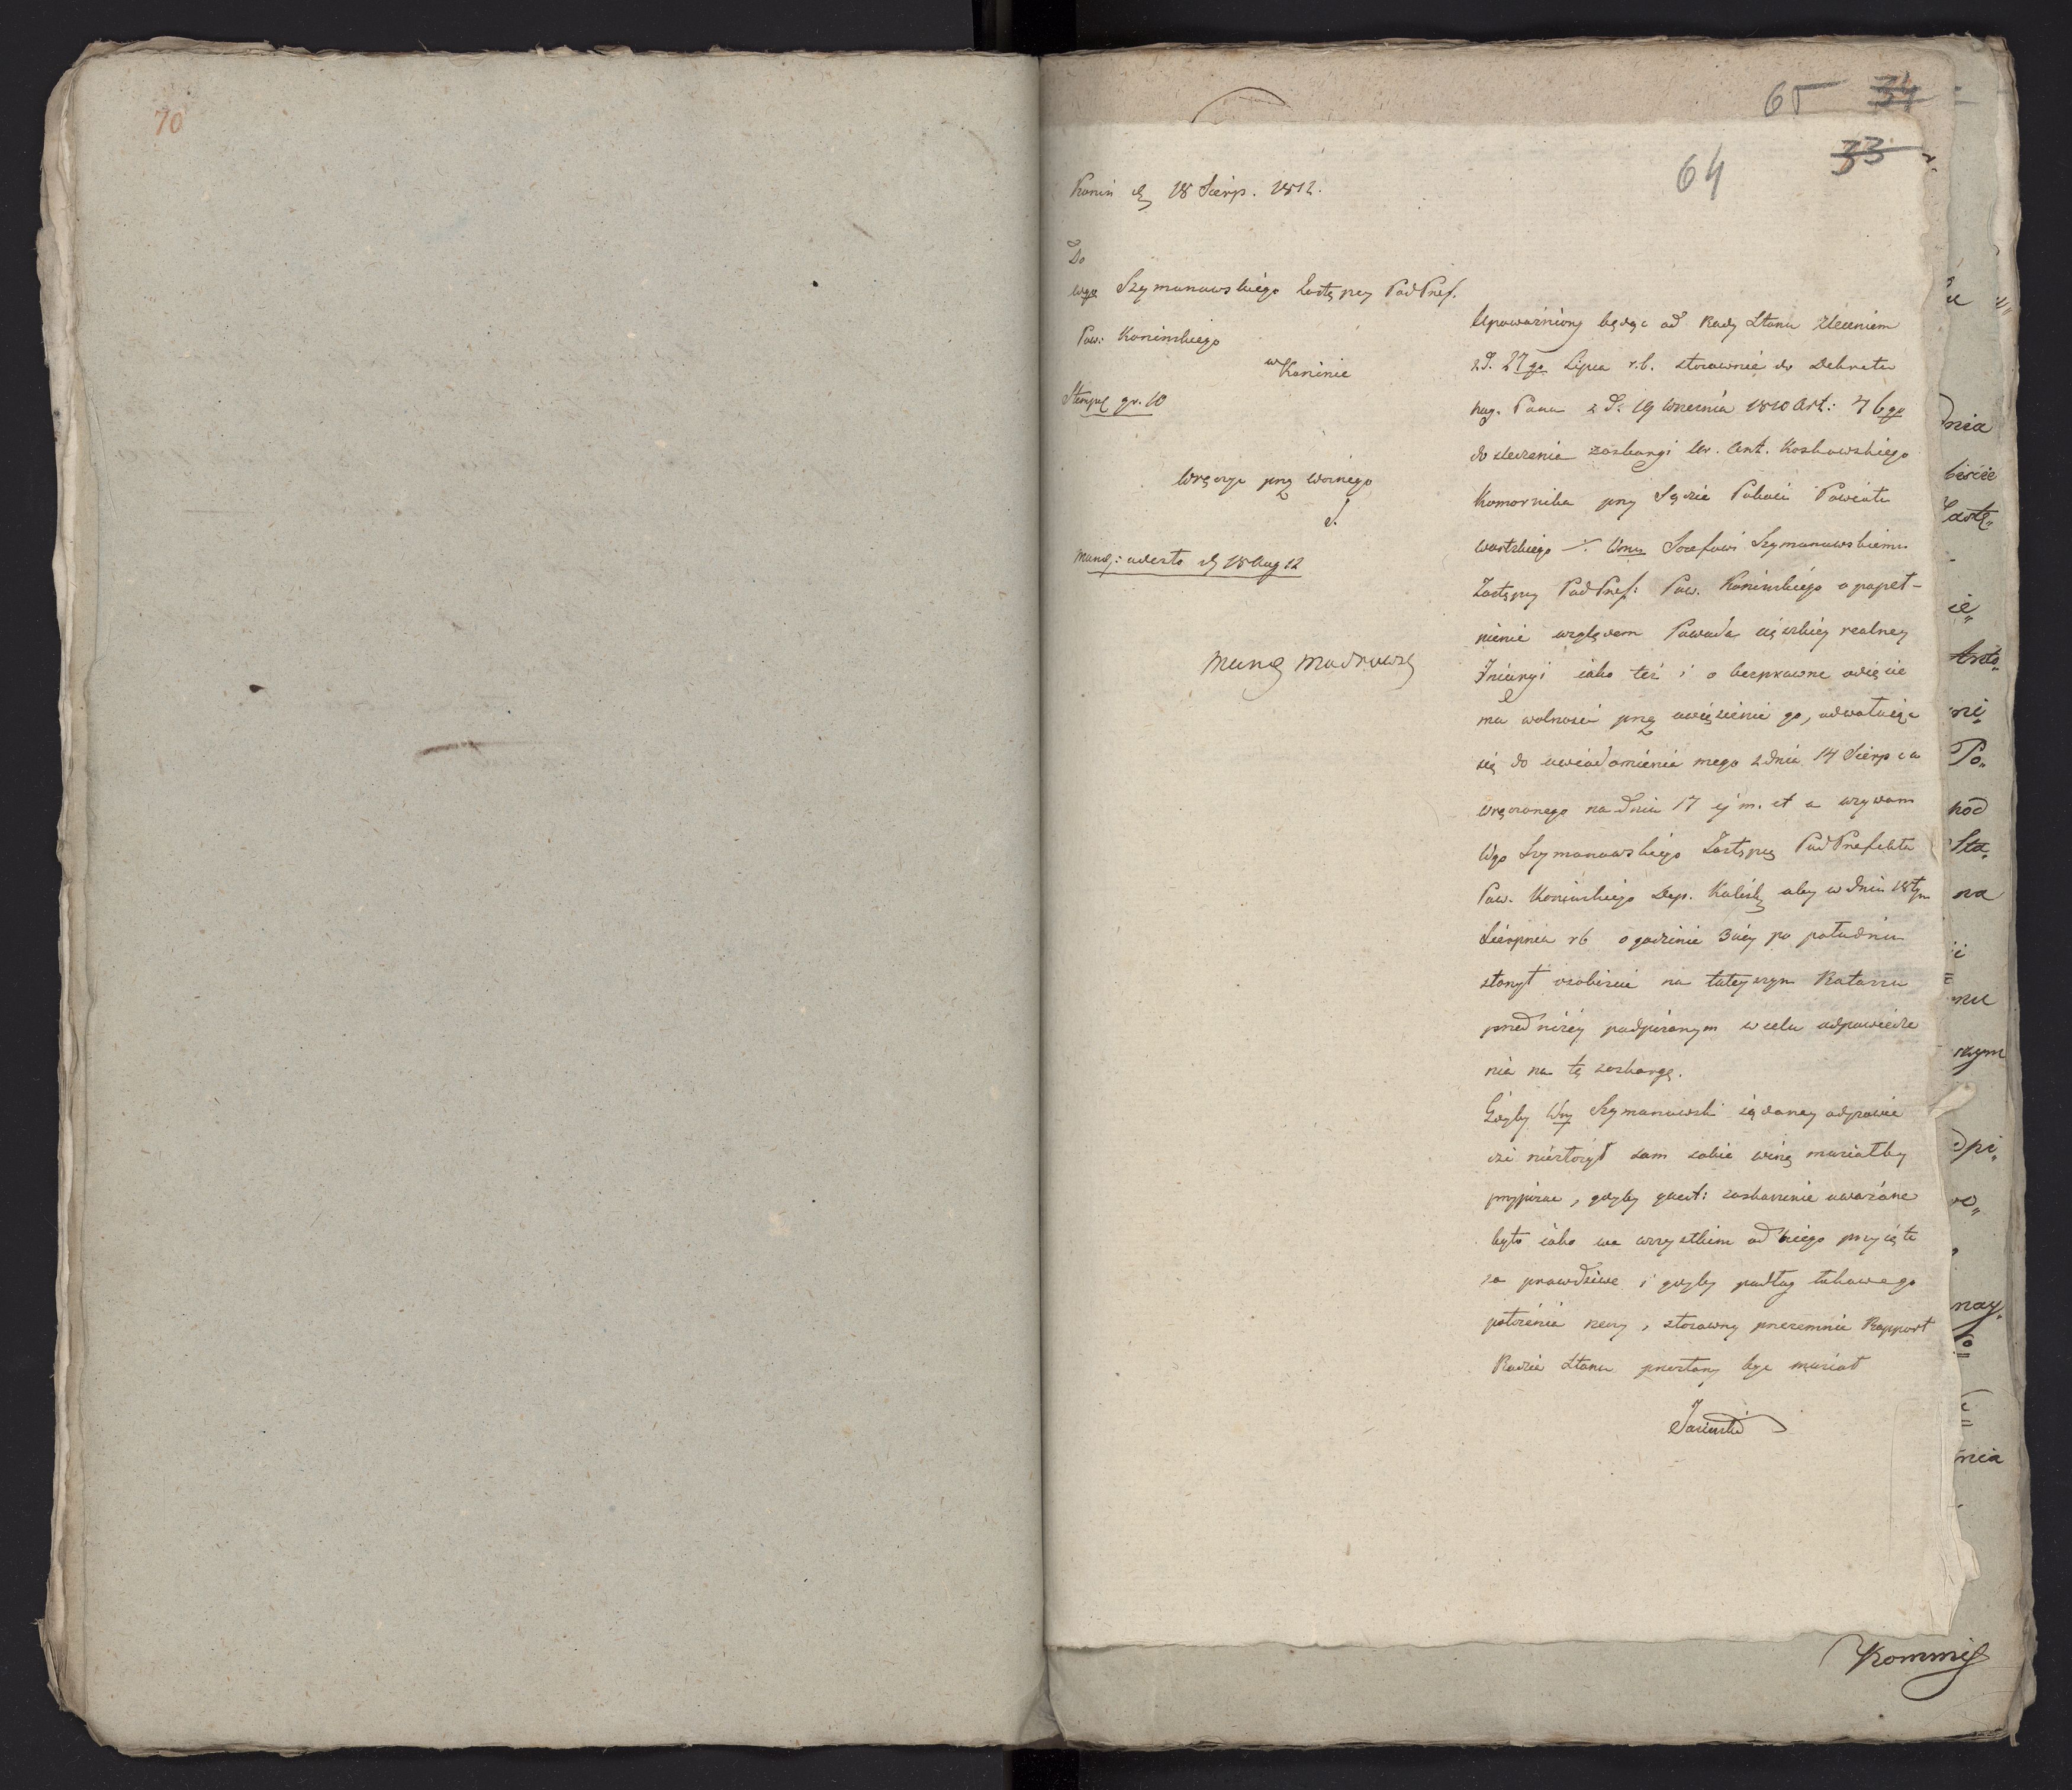 70
65 34
64 33
Konin d 18 Sierp. 1812.
Do
Wgo Szymanowskiego Zastępcy PodPref.
Pow: Konińskiego
w Koninie
Stempel gr. 10
Wręczyć prz woźnego
J.
Mund: adcrto d 18 Aug 12
Mund Modrowsz
Upoważniony będąc od Rady Stanu zleceniem
z d. 27go Lipca r.b. stosownie do Dekretu
nayj. Pana z d. 19 Września 1810 Art: 76go
do śledzenia zaskargi Ur. Ant. Koszkowskiego
Komornika przy Sądzie Pokoiu Powiatu
Wartskiego Wmu Józefowi Szymanowskiemu
Zastępcy PodPref: Pow. Konińskiego o popeł-
nienie względem Powoda ciężkiey realney
Iniuryi iako też i o bezprawne odięcie
mu wolności prz uwięzienie go, odwołuiąc
się do uwiadomienia mego z dnia 14 Sierpca
wręczonego na dniu 17 ej m. et a wzywam
Wgo Szymanowskiego Zastępcę PodPrefekta
Pow. Konińskiego Dep. Kalisk aby w dniu 18tym
Sierpnia rb o godzinie 3ciey po południu
stanął osobiście na tuteyszym Ratuszu
przed niżey podpisanym w celu odpowiedze
nia na tę zaskargę.
Gdyby Wny Szymanowski żądaney odpowie
dzi niezłożył sam sobie winę musiałby
przypisać, gdyby quest: zaskarzenie uważane
było iako we wszystkim od niego przyięte
za prawdziwe i gdyby podług takowego
położenia rzeczy, stosowny przezemnie Rapport
Radzie Stanu przesłany być musiał
Jasiński
dnia
biście
Zastę„
ię„
Po„
pod
Sta„
na
mu
szym
dpi„
nay„
nia
Kommiss